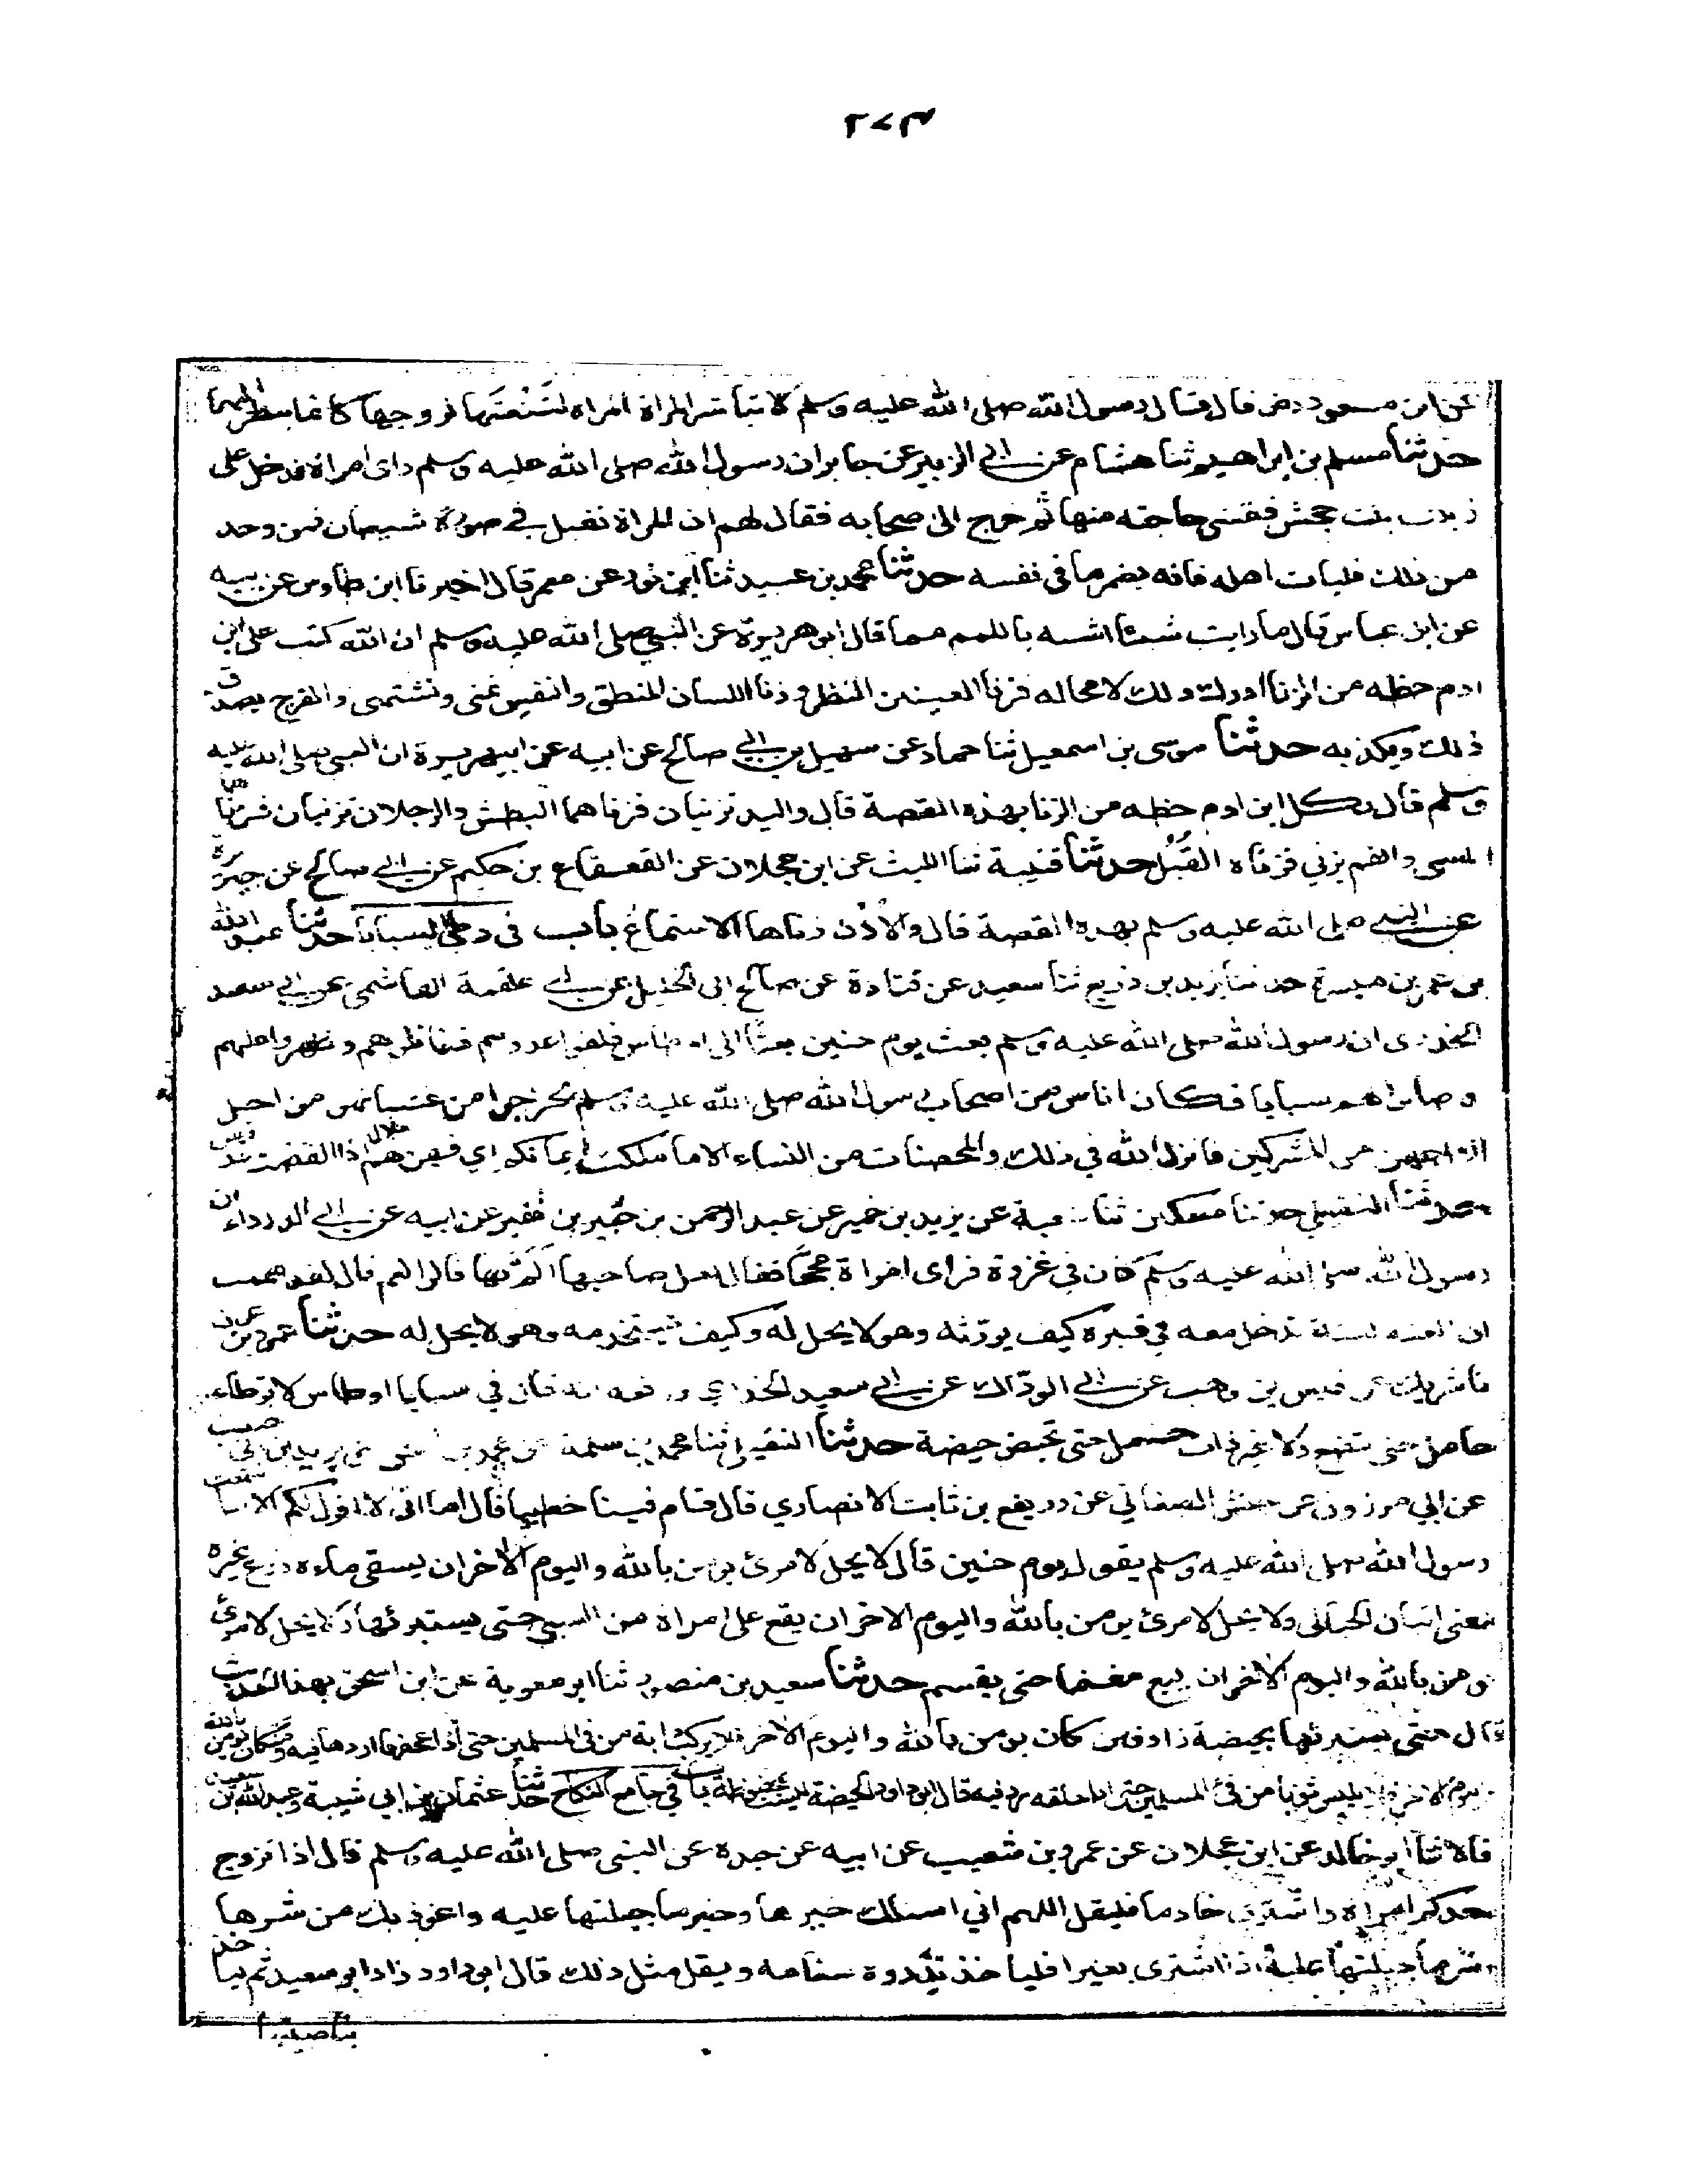 عن ابن مسعود رض قال قال رسول الله صلى الله عليه وسلم لا تباشر المراة المراة لتنعتها لزوجها كانما ينظر اليها
حدثنا مسلم بن ابراهيم ثنا هشام عن ابي الزبير عن جابر ان رسول الله صلى الله عليه وسلم راى امراة فدخل على
زينب بنت جحش فقضى حاجته منها ثم خرج الى اصحابه فقال لهم ان المراة تقبل في صورة شيطان فمن وجد
من ذلك فليات اهله فانه يضمر ما في نفسه حدثنا محمد بن عبيد ثنا ابن ثور عن معمر قال اخبرنا ابن طاوس عن ابيه
عن ابن عباس قال ما رايت شيئا اشبه باللمم مما قال ابو هريرة عن النبي صلى الله عليه وسلم ان الله كتب على ابن
ادم حظه من الزنا ادرك ذلك لا محاله فزنا العينين النظر وزنا اللسان المنطق والنفس تمنى وتشتهى والفرج يصدق
ذلك ويكذبه حدثنا موسى بن اسمعيل ثنا حماد عن سهيل بن ابي صالح عن ابيه عن ابي هريرة ان النبي صلى الله عليه
وسلم قال لكل ابن ادم حظه من الزنا بهذه القصة قال واليد تزنيان فزناهما البطش والرجلان تزنيان فزناهما
المشى والفم يزني فزناه القُبَل حدثنا قتيبة ثنا الليث عن ابن عجلان عن القعقاع بن حكيم عن ابي صالح عن
عن النبي صلى الله عليه وسلم بهذه القصة قال والاذن زناها الاستماع باب في وطئ السبايا حدثنا عبيد الله
بن عمر بن ميسرة حدثنا يزيد بن زريع ثنا سعيد عن قتادة عن صالح ابى الخليل عن ابي علقمة الهاشمى عن ابي سعيد
الخدرى ان رسول الله صلى الله عليه وسلم بعث يوم حنين بعثا الى اوطاس فلقوا عدوهم فقاتلوهم وظهروا عليهم
وصابوا لهم سبايا فكان اناس من اصحاب رسول الله صلى الله عليه وسلم تحرجوا من غشيانهن من اجل
ازواجهن من المشركين فانزل الله في ذلك والمحصنات من النساء الا ما ملكت ايمانكم اي فهن لهم حلال اذا انقضت عدتهن
حدثنا النفيلي حدثنا مسكين ثنا شعبة عن يزيد بن خمير عن عبد الرحمن بن جُبير بن نفير عن ابيه عن ابي الدرداء ان
رسول الله صلى الله عليه وسلم كان في غزوة فراى امراة مجحًّا فقال لعل صاحبها اَلَمَّ بها قالوا نعم قال لقد هممت
ان العنه لعنة تدخل معه في قبره كيف يورّثه وهو لا يحل له وكيف يستخدمه وهو لا يحل له حدثنا عمرو بن عون
نا شريك عن قيس بن وهب عن ابي الودّاك عن ابي سعيد الخدري ورفعه انه قال في سبايا اوطاس لا توطاء
حامل حتى تضع ولا غير ذات حمل حتى تحيض حيضة حدثنا النفيلي ثنا محمد بن سلمة عن محمد بن اسحق عن يزيد بن ابي حبيب
عن ابي مرزوق عن حنش الصنعاني عن رويفع بن ثابت الانصاري قال قام فينا خطيبا قال اما اني لا اقول لكم الا ما سمعت
رسول الله صلى الله عليه وسلم يقول يوم حنين قال لا يحل لامرئ يومن بالله واليوم الاخر ان يسقى ماءه زرع غيره
يعنى اتيان الحبالى ولا يحل لامرئ يومن بالله واليوم الاخر ان يقع على امراة من السبي حتى يستبرئها ولا يحل لامرئ
يومن بالله واليوم الاخر ان يبيع مغنما حتى يقسم حدثنا سعيد بن منصور ثنا ابو معوية عن ابن اسحق بهذا الحديث
قال حتى يستبرئها بحيضة زاد فمن كان يومن بالله واليوم الاخر فلا يركب دابة من فئ المسلمين حتى اذا اعجفها ردها فيه ومن كان يومن بالله
واليوم الاخر فلا يلبس ثوبا من فئ المسلمين حتى اذا اخلقه رده فيه قال ابو داود الحيضة ليست بمحفوظة باب في جامع النكاح حدثنا عثمان بن ابي شيبة وعبد الله بن سعيد
قالا ثنا ابو خالد عن ابن عجلان عن عمرو بن شعيب عن ابيه عن جده عن النبي صلى الله عليه وسلم قال اذا تزوج
احدكم امراة او اشترى خادما فليقل اللهم اني اسئلك خيرها وخير ما جبلتها عليه واعوذ بك من شرها
وشر ما جبلتها عليه واذا اشترى بعيرا فلياخذ بذروة سنامه ويقل مثل ذلك قال ابو داود زاد ابو سعيد ثم لياخذ
بناصيتها